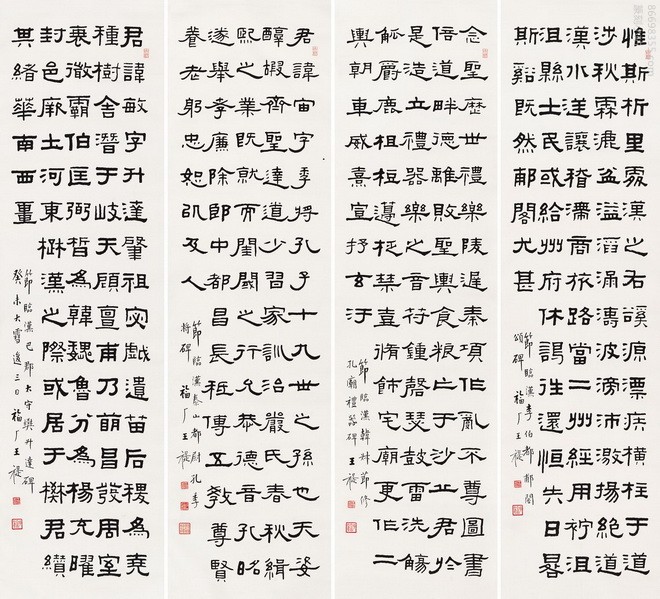 惟斯析里處漢之右谿源漂疾橫柱于道
涉秋霖漉盆溢滔涌濤波滂沛激揚絕道
漢水逆讓稽滯商旅路當二州經用柠沮
沮縣士民或給州府休謁往還恆失日晷
斯谿既然郙閣尤甚
節臨漢李伯都郙閣
頌碑 福厂王禔
念聖歷世禮樂陵遲秦項作亂不尊圖書
倍道畔德離敗聖輿食糧亡于沙丘君於
是造立禮器樂之音符鍾磬瑟鼓雷洗觴
觚爵鹿柤梪籩柉禁壺脩飾宅廟更作二
輿朝車威熹宣抒玄汙
節臨漢韓叔節修
孔廟禮器碑 王禔
君諱宙字季將孔子十九世之孫也天姿
醇嘏齊聖達道少習家訓治嚴氏春秋緝
熙之業既就而閨閾之行允恭德音孔昭
遂舉孝廉除郎中都昌長祗傳五教尊賢
養老躬忠恕以及人
節臨漢泰山都尉孔季
將碑 福厂王禔
君諱敏字升達肇祖宓戲遺苗后稷為堯
種樹舍潛于岐天顧亶甫乃萌昌發周室
衰微霸伯匡弼晢為韓魏魯分為楊充曜
封邑厥土河東楸漢之際或居于楙君纘
其緒華南西畺
節臨漢巴郡太守樊升達碑
癸未大雪後三日福厂王禔